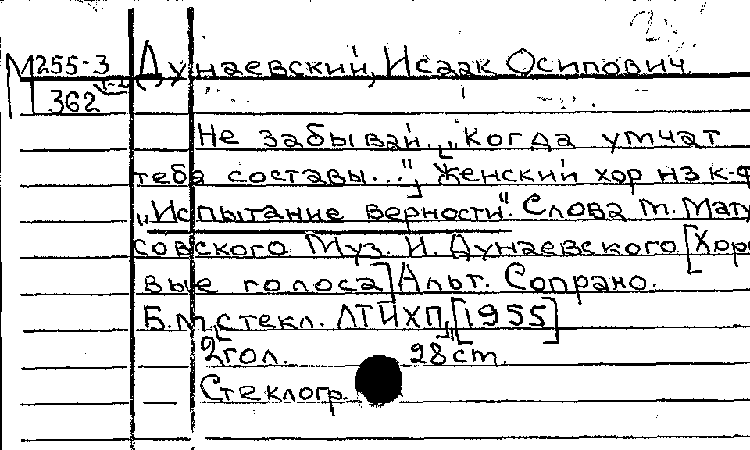 М255-3 Дунаевский, Исаак Осипович
362
Не забывай. ["Когда умчат
тебя составы..."] Женский хор из к-ф
"Испытание верности". Слова М. Мату
совского Муз. И. Дунаевского [Хоро
вые голоса] Альт. Сопрано.
Б.м., [стекл. ЛТИХП], [1955]
2гол. 28 см.
Стеклогр.